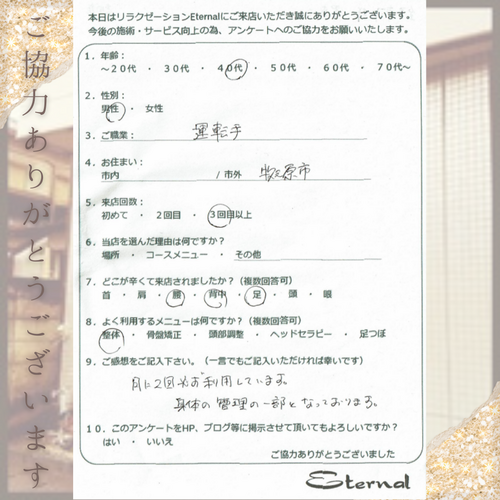 ご協力ありがとうございます
本日はリラクゼーションEternalにご来店いただき誠にありがとうございます。
今後の施術・サービス向上の為、アンケートへのご協力をお願いいたします。
1．年齢：
～20代 ・ 30代 ・ 40代 ・ 50代 ・ 60代 ・ 70代～
2．性別：
男性 ・ 女性
3．ご職業： 運転手
4．お住まい：
市内 / 市外 牧之原市
5．来店回数：
初めて ・ 2回目 ・ 3回目以上
6．当店を選んだ理由は何ですか？
場所 ・ コースメニュー ・ その他
7．どこが辛くて来店されましたか？（複数回答可）
首 ・ 肩 ・ 腰 ・ 背中 ・ 足 ・ 頭 ・ 眼
8．よく利用するメニューは何ですか？（複数回答可）
整体 ・ 骨盤矯正 ・ 頭部調整 ・ ヘッドセラピー ・ 足つぼ
9．ご感想をご記入下さい。（一言でもご記入いただければ幸いです）
月に2回お利用しています。
身体の管理の一部となっております。
10．このアンケートをHP、ブログ等に掲示させて頂いてもよろしいですか？
はい ・ いいえ
ご協力ありがとうございました
Eternal